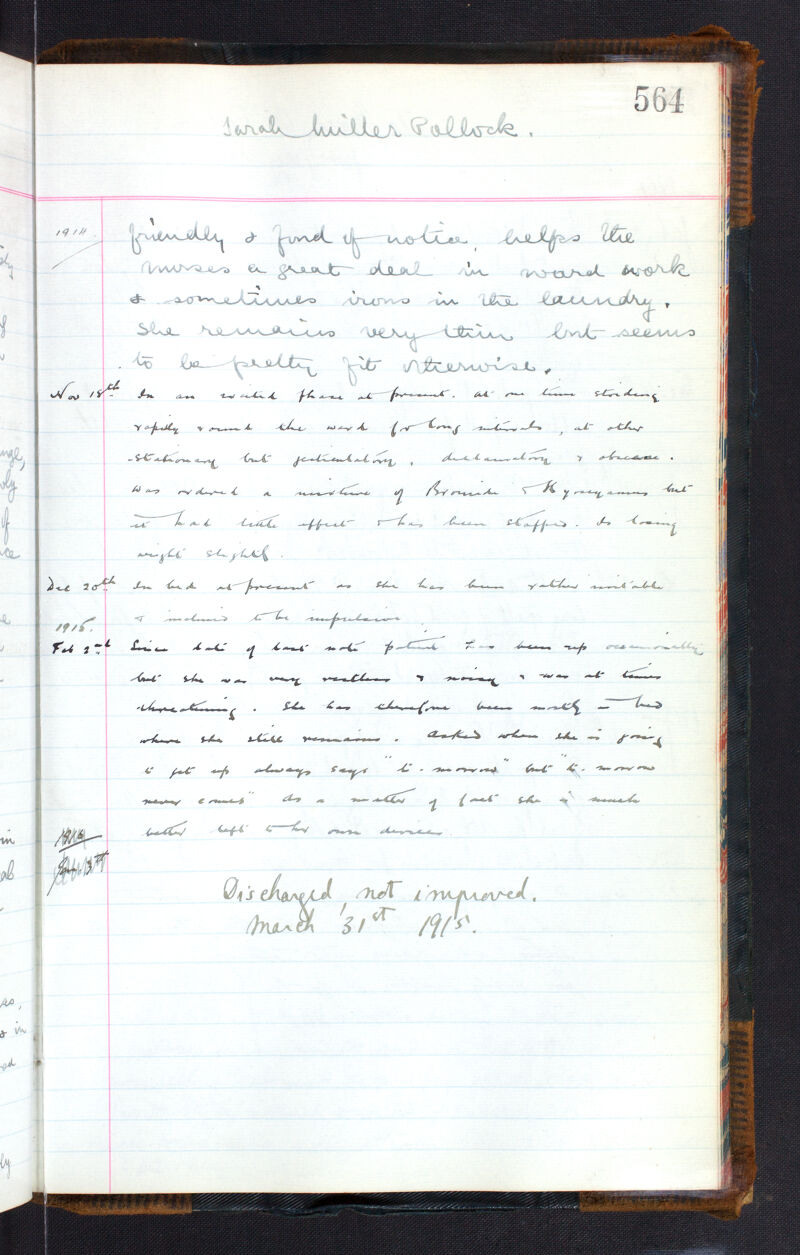 564
Sarah Miller Pollock.
1914 friendly & fond of notice, helps the
nurses a great deal in ward work
& sometimes irons in the laundry.
She remains very thin but seems
to be pretty fit otherwise.
Nov 18th In an excited phase at present. At one time striding
rapidly round the ward for long intervals, at other
stationary but gesticulatory, declamatory & obscene.
Was ordered a mixture of Bromide & Hyoscyamus but
it had little effect & has been stopped. Is losing
weight slightly.
Dec 20th In bed at present as she has been rather irritable
& inclined to be impulsive.
1915.
Feb 2nd Since date of last note patient has been up occasionally
but she was very restless & noisy & was at times
threatening. She has therefore been mostly in bed
where she still remains. Asked when she is going
to get up always says "to-morrow" but "to-morrow
never comes" As a matter of fact she is much
better left to her own devices
Discharged, not improved.
March 31st 1915.